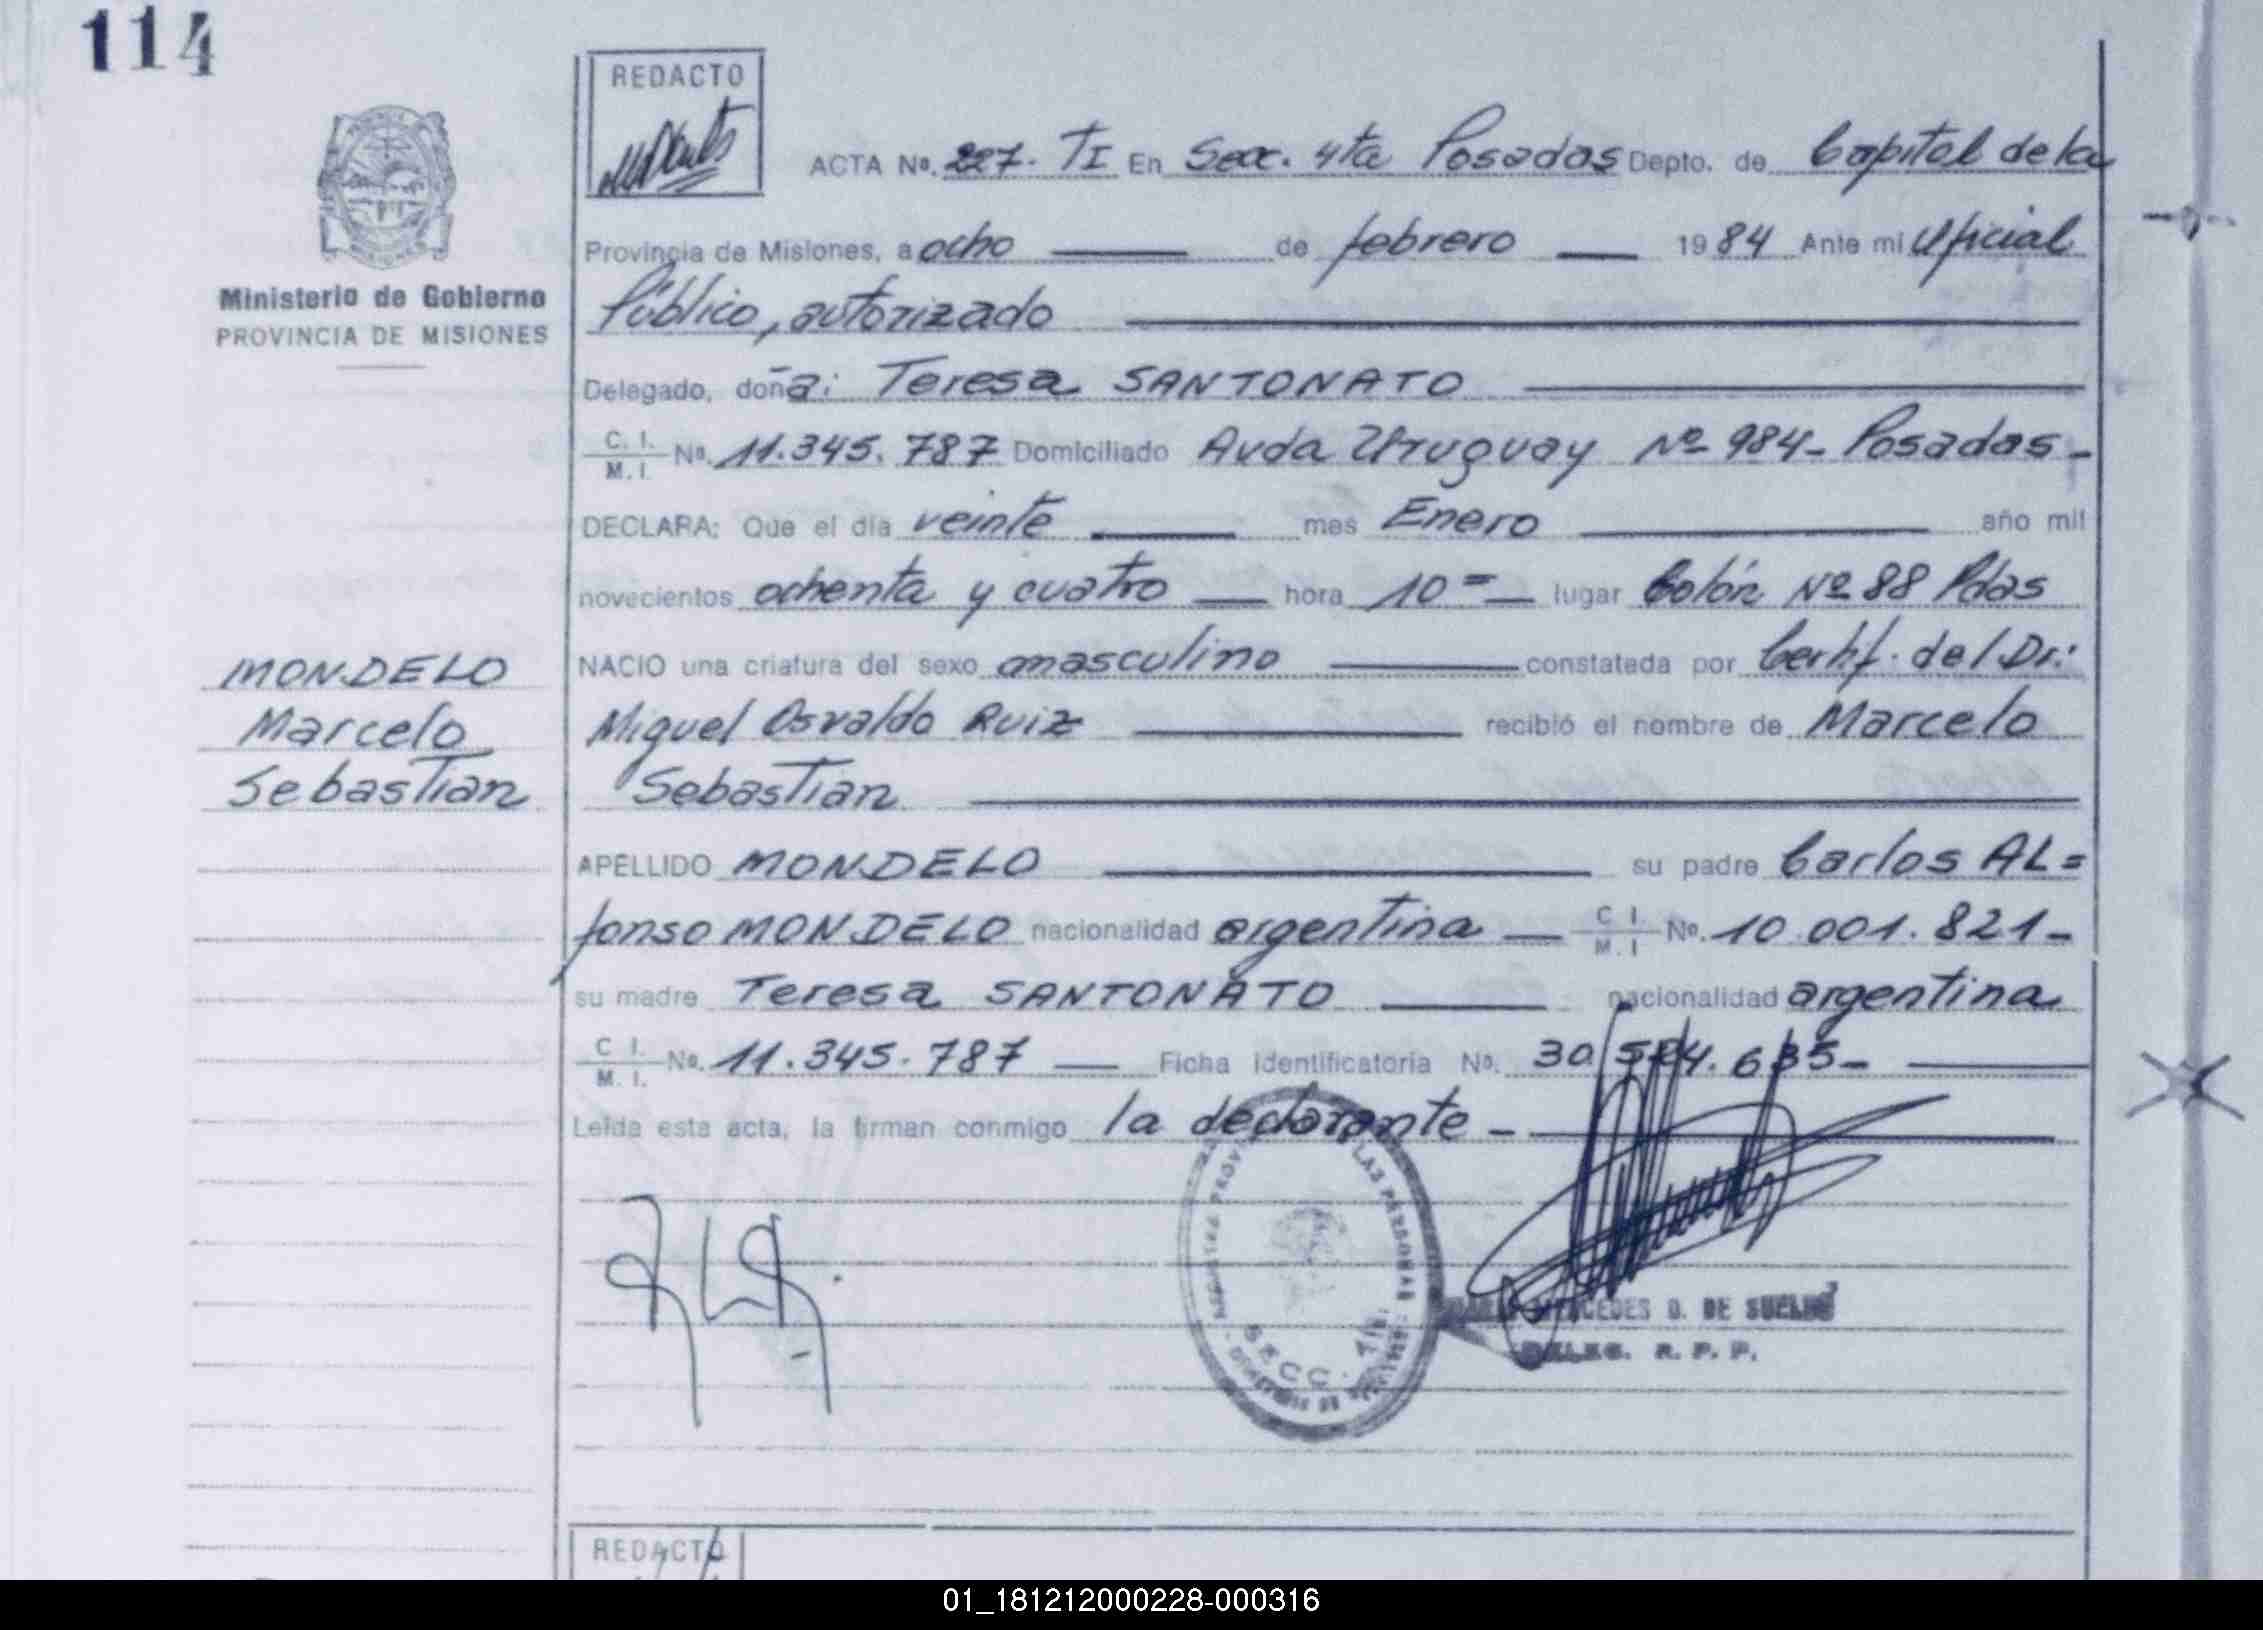 114
REDACTO
ACTA Nº. 227. TI En Secc. 4ta Posadas Depto. de Capital de la
Provincia de Misiones, a ocho de febrero 1984 Ante mi Oficial
Ministerio de Gobierno
PROVINCIA DE MISIONES
Público, autorizado
Delegado, doña: Teresa SANTONATO
C. I. / M. I. Nº. 11.345.787 Domiciliado Avda Uruguay Nº 984- Posadas-
DECLARA: Que el día veinte mes Enero año mil
novecientos ochenta y cuatro hora 10= lugar Colón Nº 88 Pdas
MONDELO
Marcelo
Sebastian
NACIO una criatura del sexo masculino constatada por Certif. del Dr:
Miguel Osvaldo Ruiz recibió el nombre de Marcelo
Sebastian
APELLIDO MONDELO su padre Carlos AL=
fonso MONDELO nacionalidad argentina C I. / M. I Nº. 10.001.821-
su madre Teresa SANTONATO nacionalidad argentina
C I. / M. I. Nº. 11.345.787 Ficha identificatoria Nº. 30.
Leída esta acta, la firman conmigo la declarante -
SECC.
MERCEDES D. DE
DELEG. R. P. P.
REDACTO
01_181212000228-000316